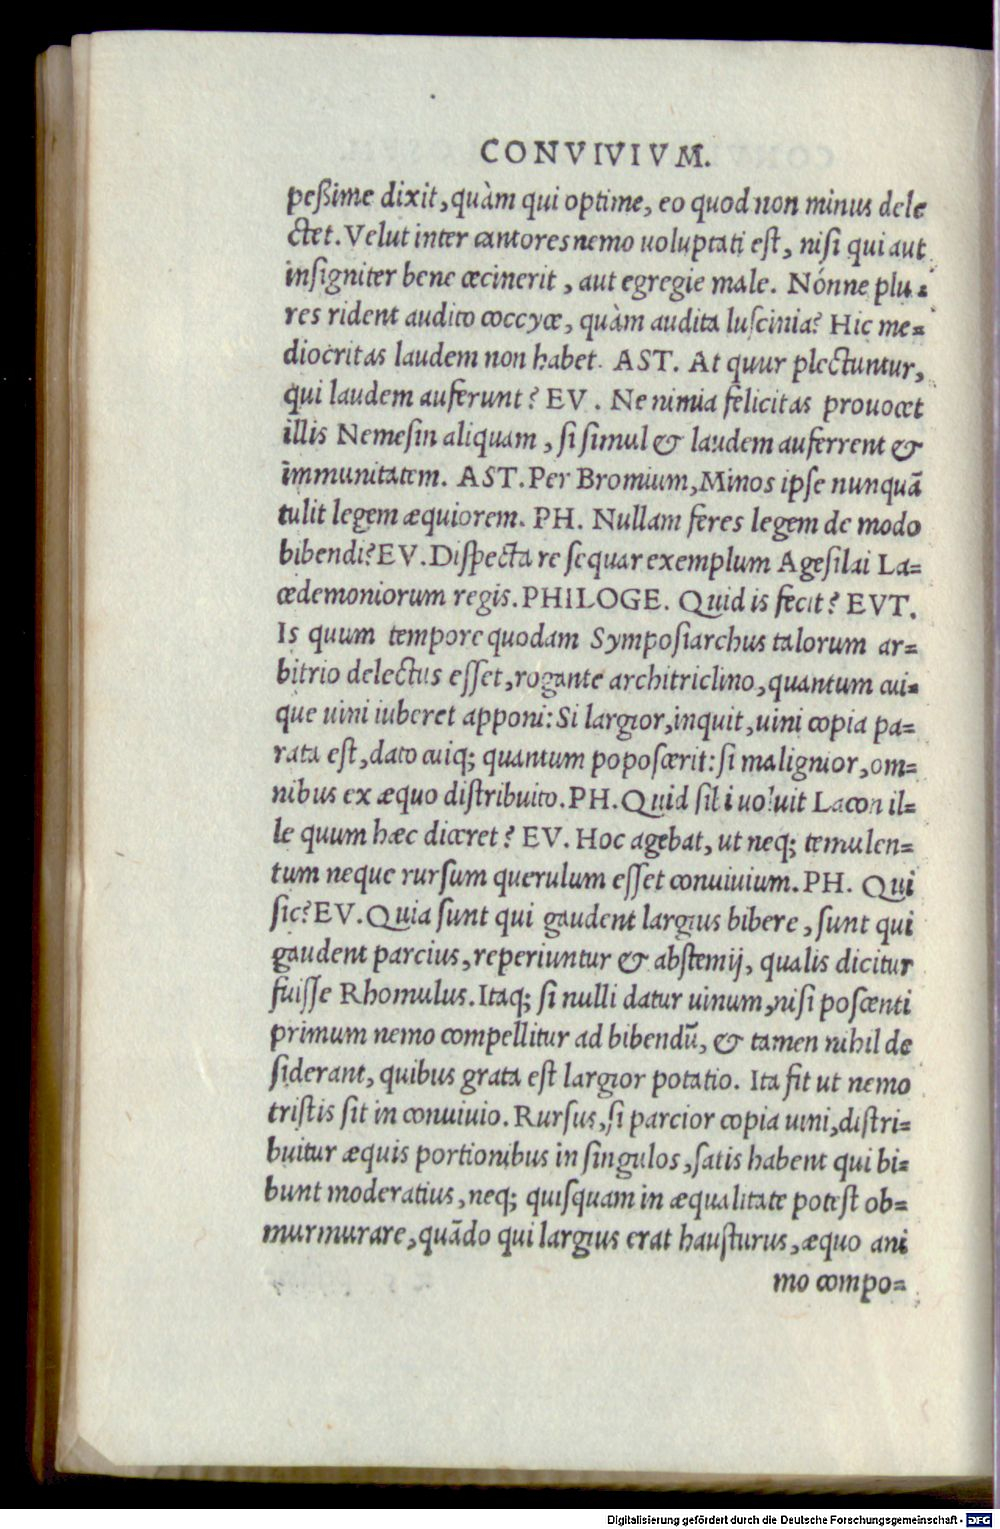 CONVIVIVM.
peßime dixit, quàm qui optime, eo quod non minus dele
ctet. Velut inter cantores nemo uoluptati est, nisi qui aut
insigniter bene cecinerit, aut egregie male. Nónne plu-
res rident audito coccyce, quàm audita luscinia? Hic me=
diocritas laudem non habet. AST. At quur plectuntur,
qui laudem auferunt? EV. Ne nimia felicitas prouocet
illis Nemesin aliquam, si simul & laudem auferrent &
immunitatem. AST. Per Bromium, Minos ipse nunquã
tulit legem æquiorem. PH. Nullam feres legem de modo
bibendi? EV. Dispecta re sequar exemplum Agesilai La=
cedemoniorum regis. PHILOGE. Quid is fecit? EVT.
Is quum tempore quodam Symposiarchus talorum ar=
bitrio delectus esset, rogante architriclino, quantum cui=
que uini iuberet apponi: Si largior, inquit, uini copia pa=
rata est, dato cuiq; quantum poposcerit: si malignior, om=
nibus ex æquo distribuito. PH. Quid sibi uoluit Lacon il=
le quum hæc diceret? EV. Hoc agebat, ut neq; temulen=
tum neque rursum querulum esset conuiuium. PH. Qui
sic? EV. Quia sunt qui gaudent largius bibere, sunt qui
gaudent parcius, reperiuntur & abstemij, qualis dicitur
fuisse Rhomulus. Itaq; si nulli datur uinum, nisi poscenti
primum nemo compellitur ad bibendũ, & tamen nihil de
siderant, quibus grata est largior potatio. Ita fit ut nemo
tristis sit in conuiuio. Rursus, si parcior copia uini, distri=
buitur æquis portionibus in singulos, satis habent qui bi=
bunt moderatius, neq; quisquam in æqualitate potest ob=
murmurare, quãdo qui largius erat hausturus, æquo ani
mo compo=
Digitalisierung gefördert durch die Deutsche Forschungsgemeinschaft - DFG